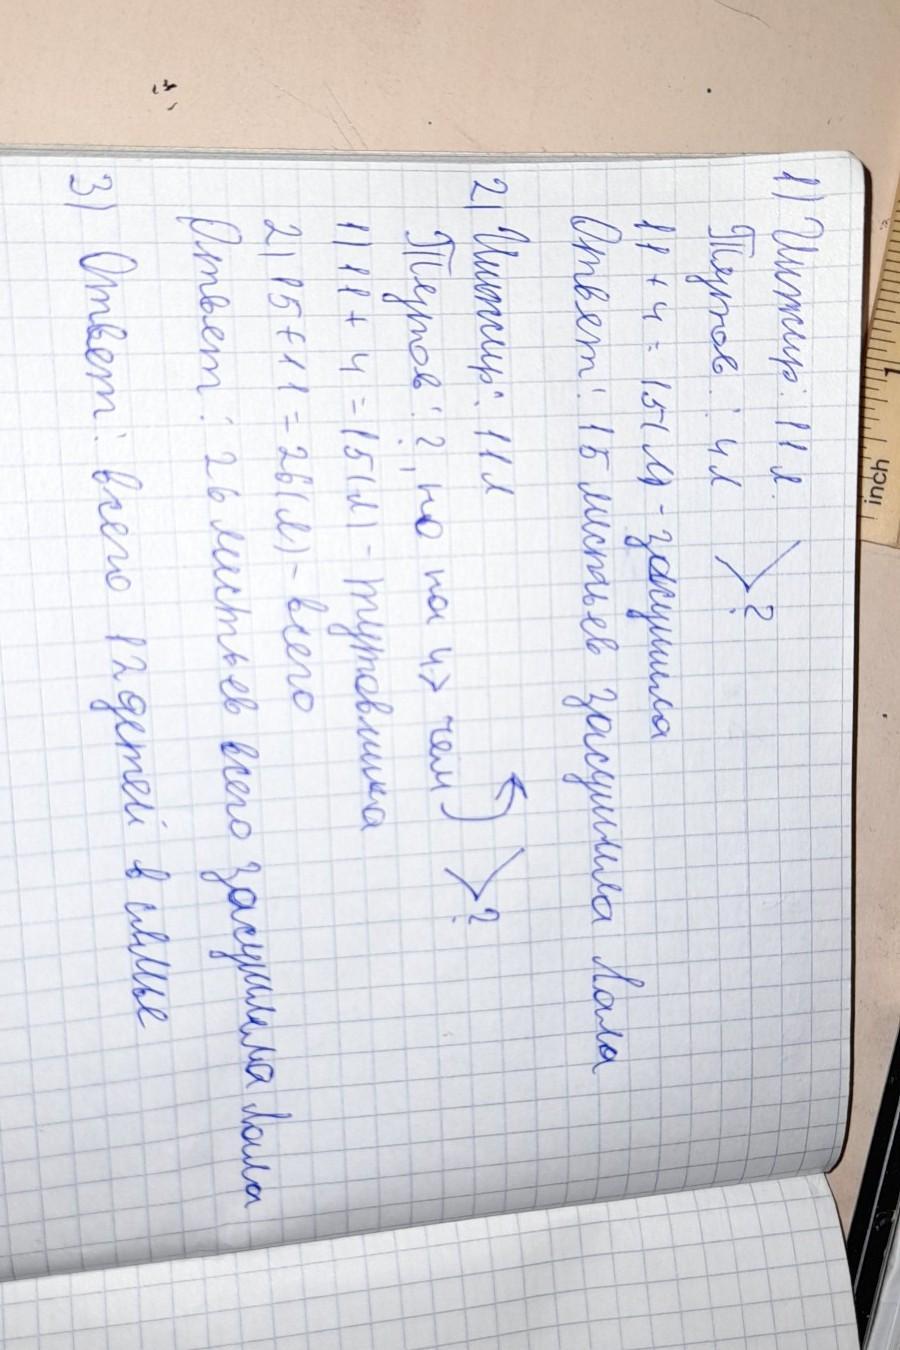 1) Инжир: 11 л.
Тутов.: 4 л >?
11 + 4 = 15 (л) - засушила
Ответ: 15 листьев засушила Лала
2) Инжир: 11 л
Тутов.: ?, но на 4 > чем >?
1) 11 + 4 = 15 (л) - тутовника
2) 15 + 11 = 26 (л) - всего
Ответ: 26 листьев всего засушила Лала
3) Ответ: всего 12 детей в семье
inch
1